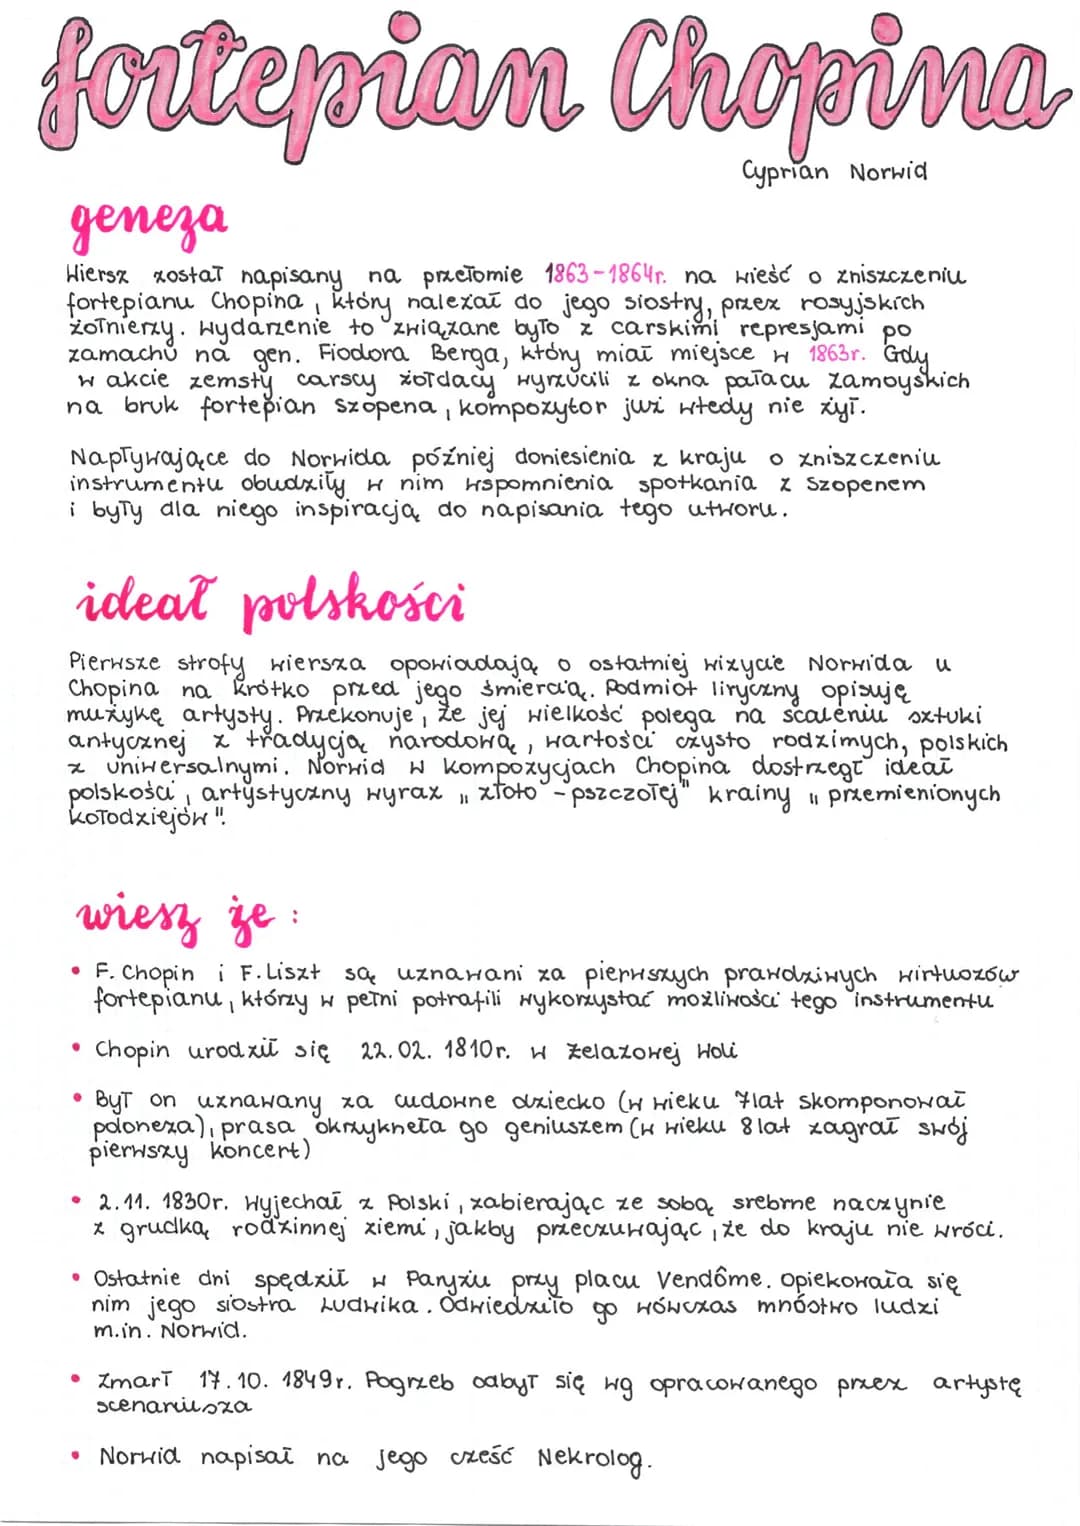 fortepian Chopina
Cyprian Norwid
geneza
Wiersz został napisany na przełomie 1863-1864r. na wieść o zniszczeniu
fortepianu Chopina, który należał do jego siostry, przez rosyjskich
żołnierzy. Wydarzenie to związane było z carskimi represjami po
zamachu na gen. Fiodora Berga, który miał miejsce w 1863r. Gdy
w akcie zemsty carscy żołdacy wyrzucili z okna pałacu Zamoyskich
na bruk fortepian Szopena, kompozytor już wtedy nie żył.
Napływające do Norwida później doniesienia z kraju o zniszczeniu
instrumentu obudziły w nim wspomnienia spotkania z Szopenem
i były dla niego inspiracją do napisania tego utworu.
ideał polskości
Pierwsze strofy wiersza opowiadają o ostatniej wizycie Norwida u
Chopina na krótko przed jego śmiercią. Podmiot liryczny opisuję
muzykę artysty. Przekonuje, że jej wielkość polega na scaleniu sztuki
antycznej z tradycją narodową, wartości czysto rodzimych, polskich
z uniwersalnymi. Norwid w kompozycjach Chopina dostrzegł ideał
polskości, artystyczny wyraz „złoto-pszczołej" krainy „przemienionych
kołodziejów".
wiesz że:
• F. Chopin i F. Liszt są uznawani za pierwszych prawdziwych wirtuozów
fortepianu, którzy w pełni potrafili wykorzystać możliwości tego instrumentu
• Chopin urodził się 22.02.1810r. w Żelazowej Woli
• Był on uznawany za cudowne dziecko (w wieku 7lat skomponował
poloneza), prasa okrzyknęła go geniuszem (w wieku 8lat zagrał swój
pierwszy koncert)
• 2.11.1830r. wyjechał z Polski, zabierając ze sobą srebrne naczynie
z grudką rodzinnej ziemi, jakby przeczuwając, że do kraju nie wróci.
• Ostatnie dni spędził w Paryżu przy placu Vendôme. Opiekowała się
nim jego siostra Ludwika. Odwiedziło go wówczas mnóstwo ludzi
m.in. Norwid.
• Zmarł 17.10.1849r. Pogrzeb odbył się wg opracowanego przez artystę
scenariusza
• Norwid napisał na jego cześć Nekrolog.